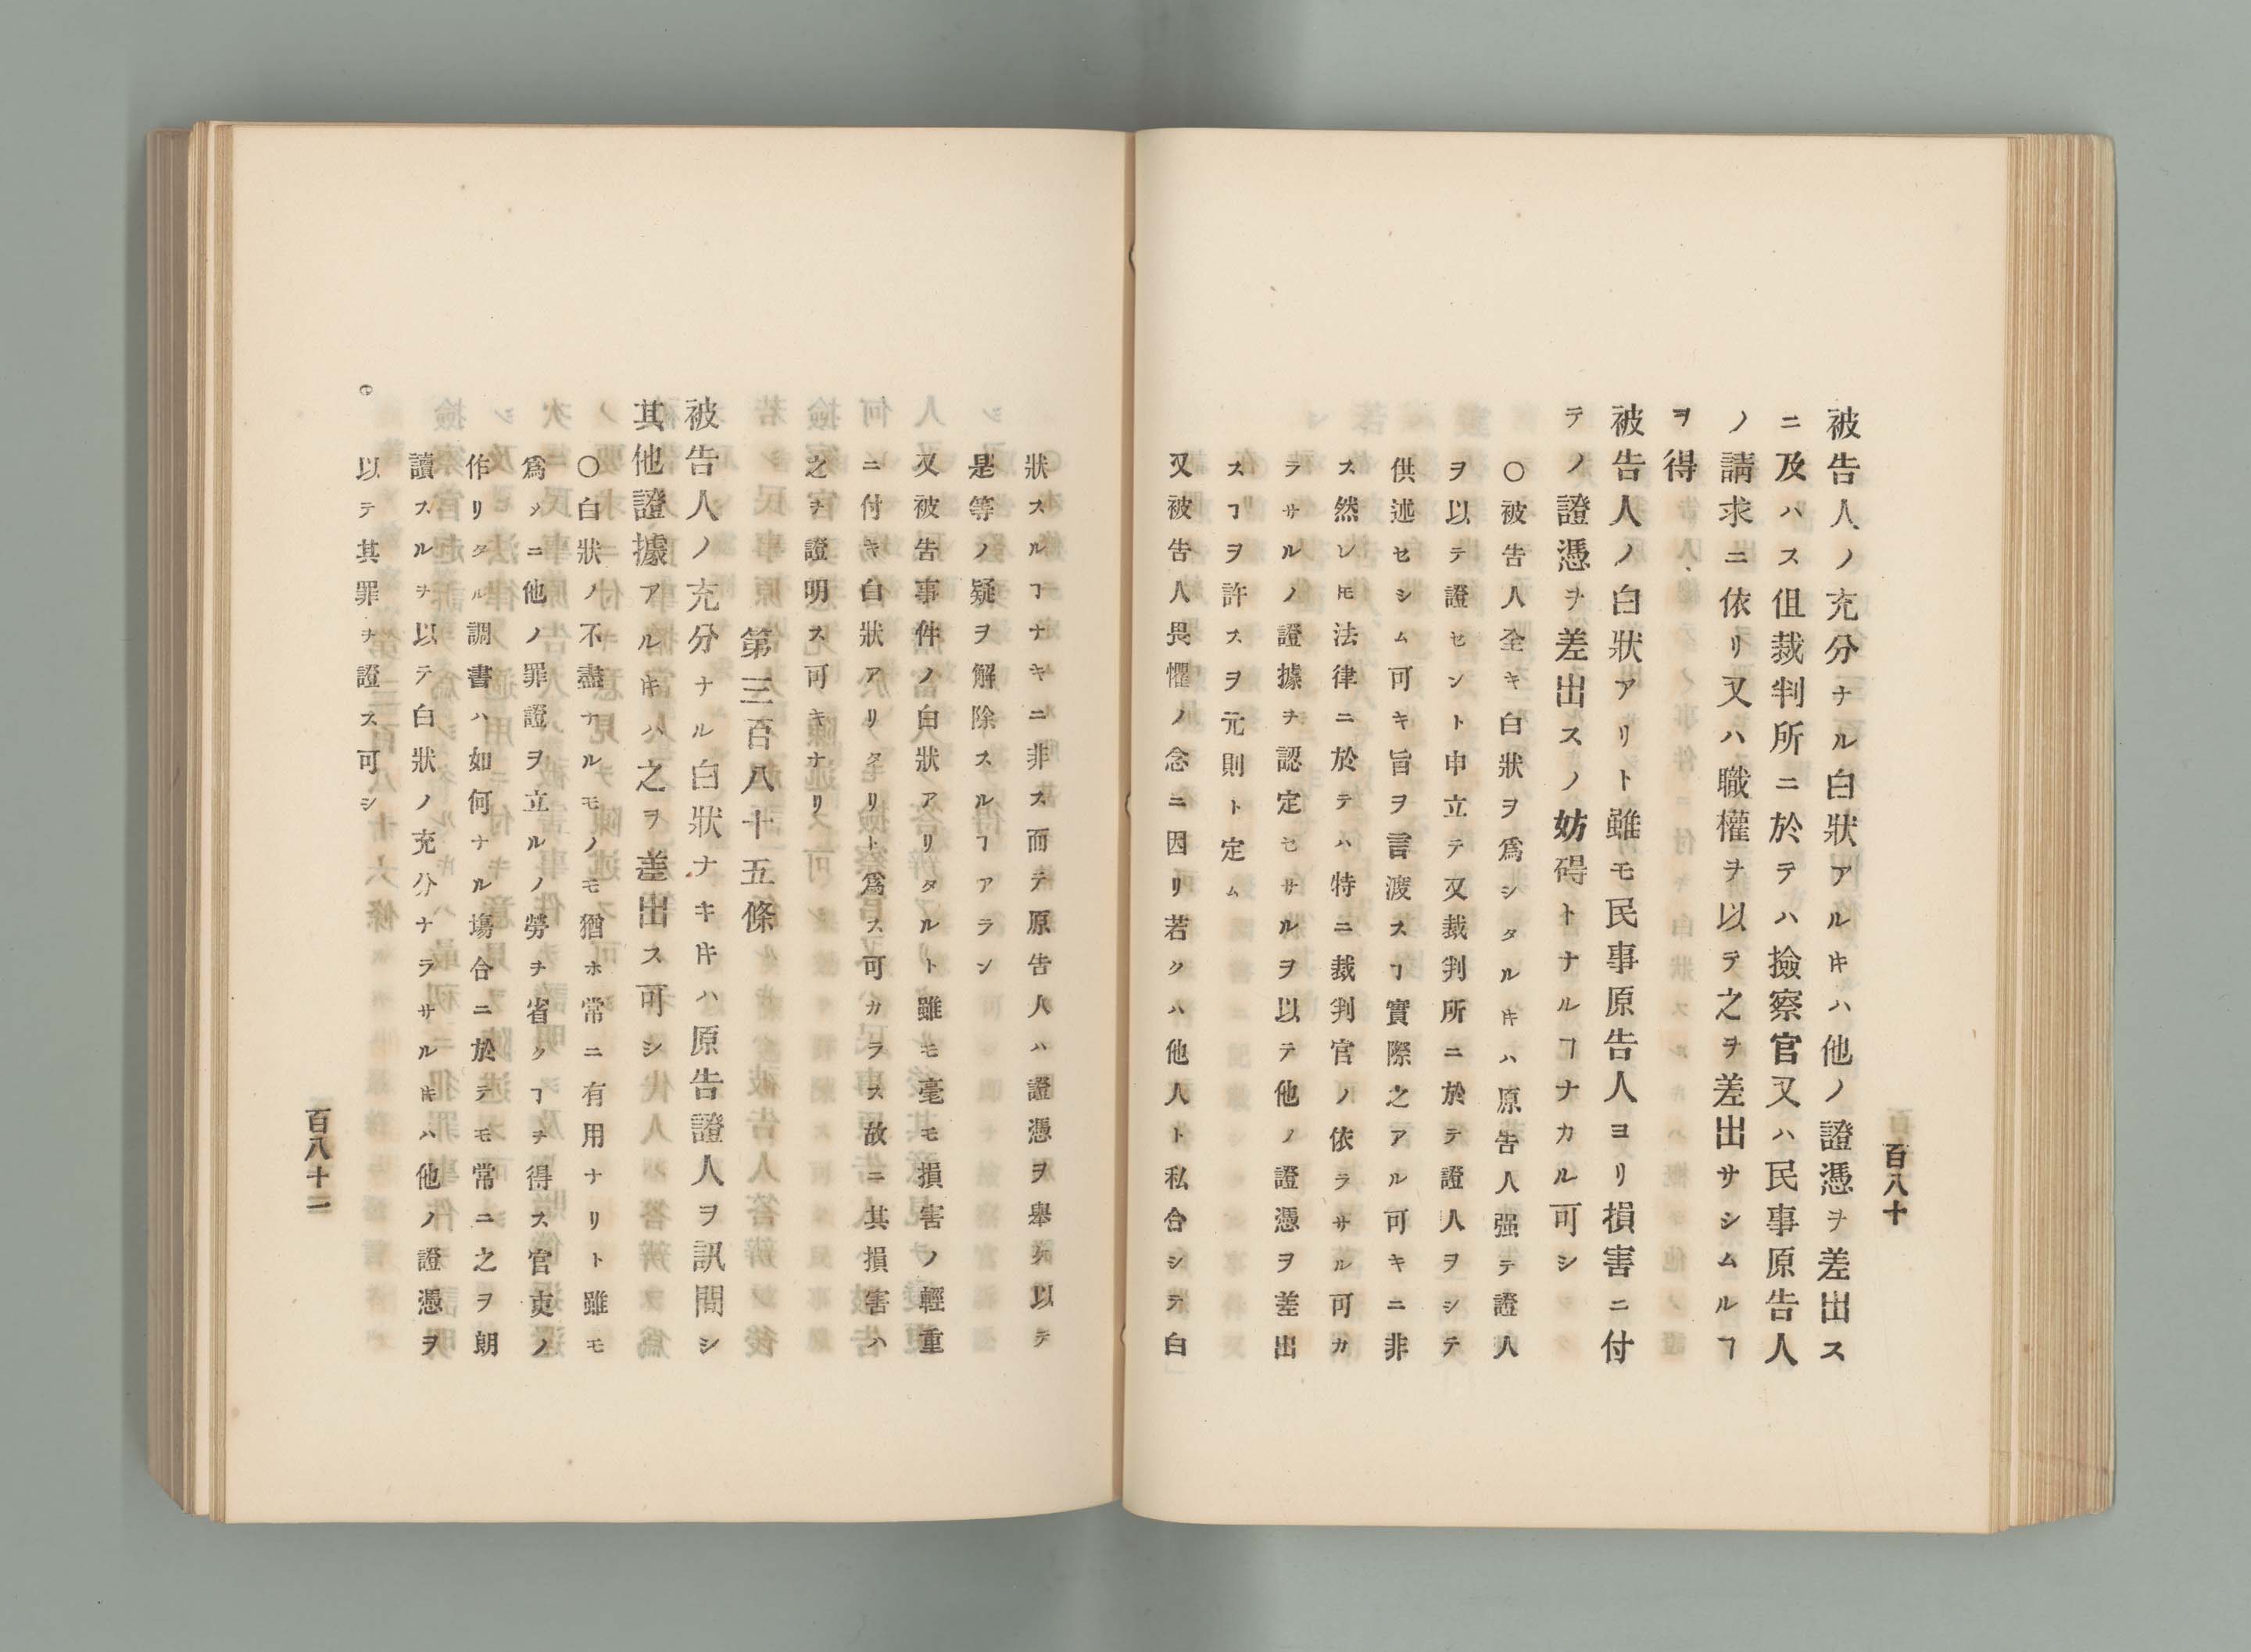 被告人ノ充分ナル白狀アルキハ他ノ證憑ヲ差出ス
ニ及ハス伹裁判所ニ於テハ撿察官又ハ民事原告人
ノ請求ニ依リ又ハ職權ヲ以テ之ヲ差出サシムルヿ
ヲ得
被告人ノ白狀アリト雖モ民事原告人ヨリ損害ニ付
テノ證憑ヲ差出スノ妨碍トナルヿナカル可シ
〇被告人全キ白狀ヲ爲シタルキハ原告人强テ證人
ヲ以テ證セント申立テ又裁判所ニ於テ證人ヲシテ
供述セシム可キ旨ヲ言渡スヿ實際之アル可キニ非
ス然レ𪜈法律ニ於テハ特ニ裁判官ノ依ラサル可カ
ラサルノ證據ヲ認定セサルヲ以テ他ノ證憑ヲ差出
スヿヲ許スヲ元則ト定ム
又被告人畏懼ノ念ニ因リ若クハ他人ト私合シテ白
百八十
狀スルヿナキニ非ス而テ原告人ハ證憑ヲ舉ケ以テ
是等ノ疑ヲ解除スルヿアラン
又被告事件ノ白狀アリタルト雖モ毫モ損害ノ輕重
ニ付キ白狀アリタリト爲ス可カラス故ニ其損害ハ
之ヲ證明ス可キナリ
第三百八十五條
被告人ノ充分ナル白狀ナキキハ原告證人ヲ訊問シ
其他證據アルキハ之ヲ差出ス可シ
〇白狀ノ不盡ナルモノモ猶ホ常ニ有用ナリト雖モ
爲メニ他ノ罪證ヲ立ルノ勞ヲ省クヿヲ得ス官吏ノ
作リタル調書ハ如何ナル塲合ニ於テモ常ニ之ヲ朗
讀スルヲ以テ白狀ノ充分ナラサルキハ他ノ證憑ヲ
以テ其罪ヲ證ス可シ
百八十一